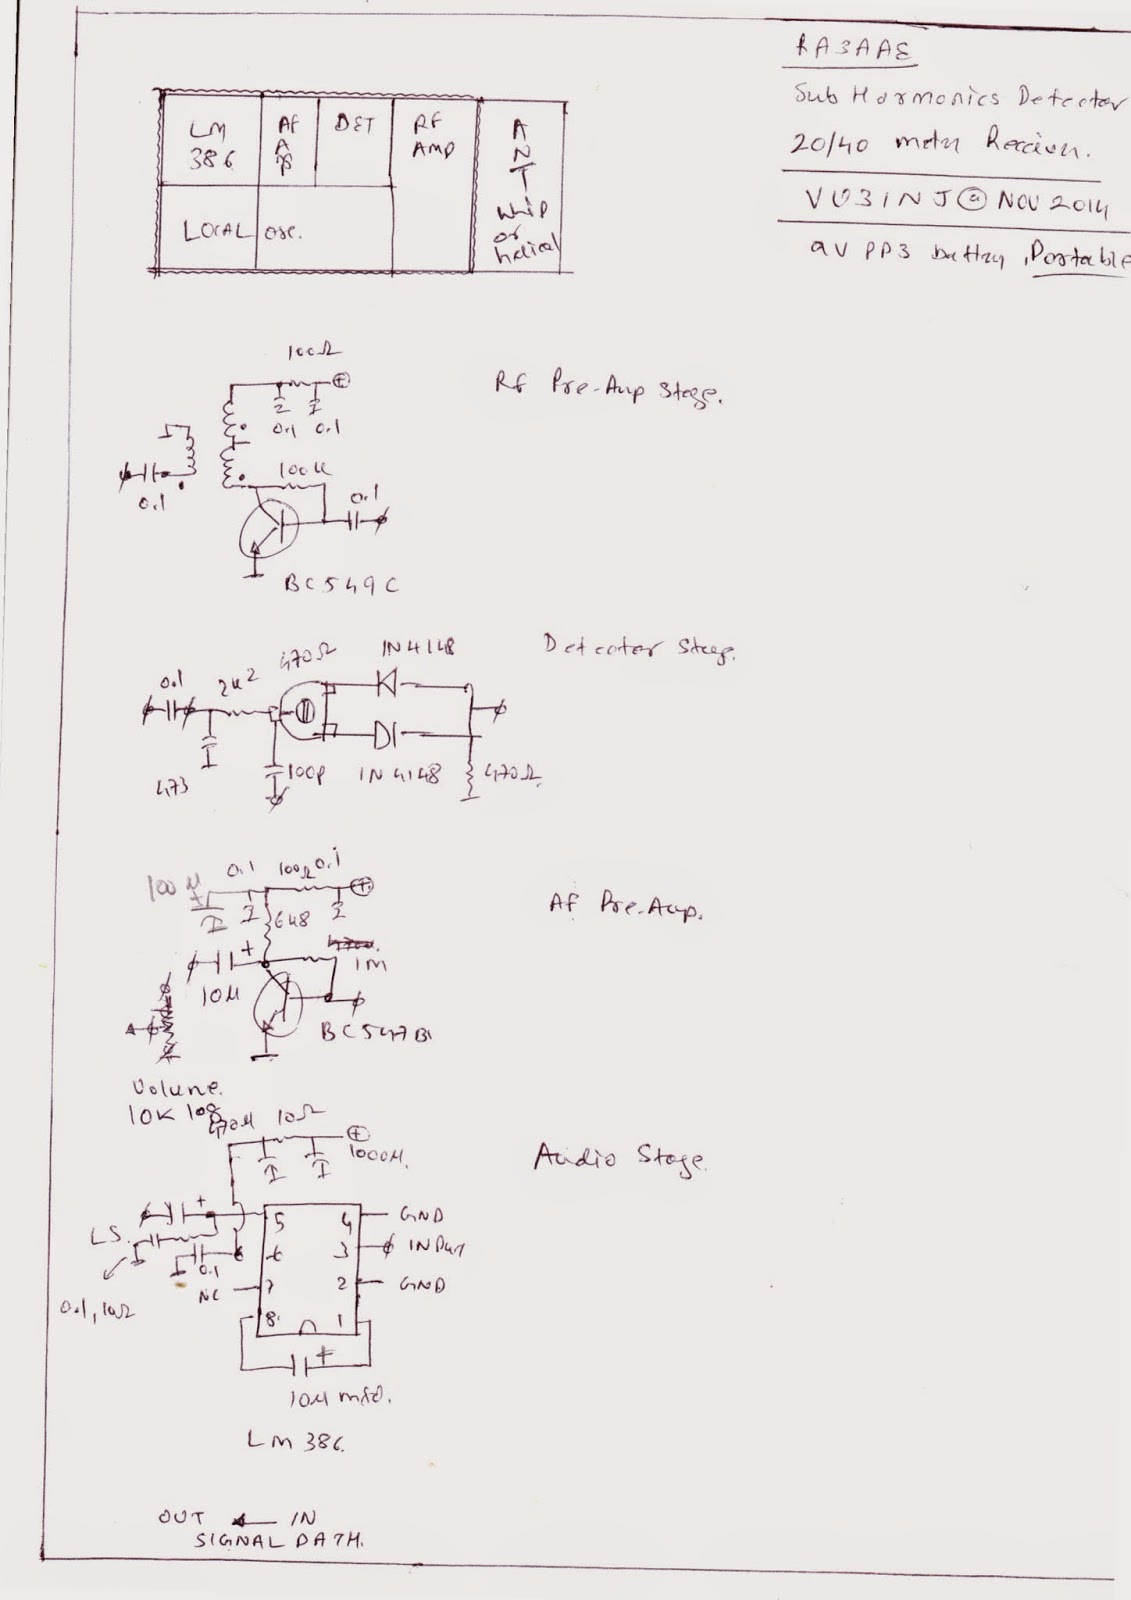 RA3AAE
Sub Harmonics Detector
20/40 meter Receiver.
VU3INJ @ NOV 2014
9V PP3 battery, Portable
LM
386
AF
AMP
DET
RF
AMP
ANT
Whip
or
helical
LOCAL osc.
100Ω
0.1 0.1
Rf Pre-Amp Stage.
0.1
100K
0.1
BC549C
Detector Stage.
0.1
2K2
470Ω
IN4148
473
100p
IN4148
470Ω
AF Pre-Amp.
100µ
0.1
100Ω
0.1
6K8
1M
10µ
BC547B
Volume.
10K log
Audio Stage.
470µ
10Ω
1000µ.
LS.
0.1, 10Ω
0.1
NC
5
6
7
8
4
3
2
1
GND
INPUT
GND
10µ mfd.
LM 386.
OUT IN
SIGNAL PATH.